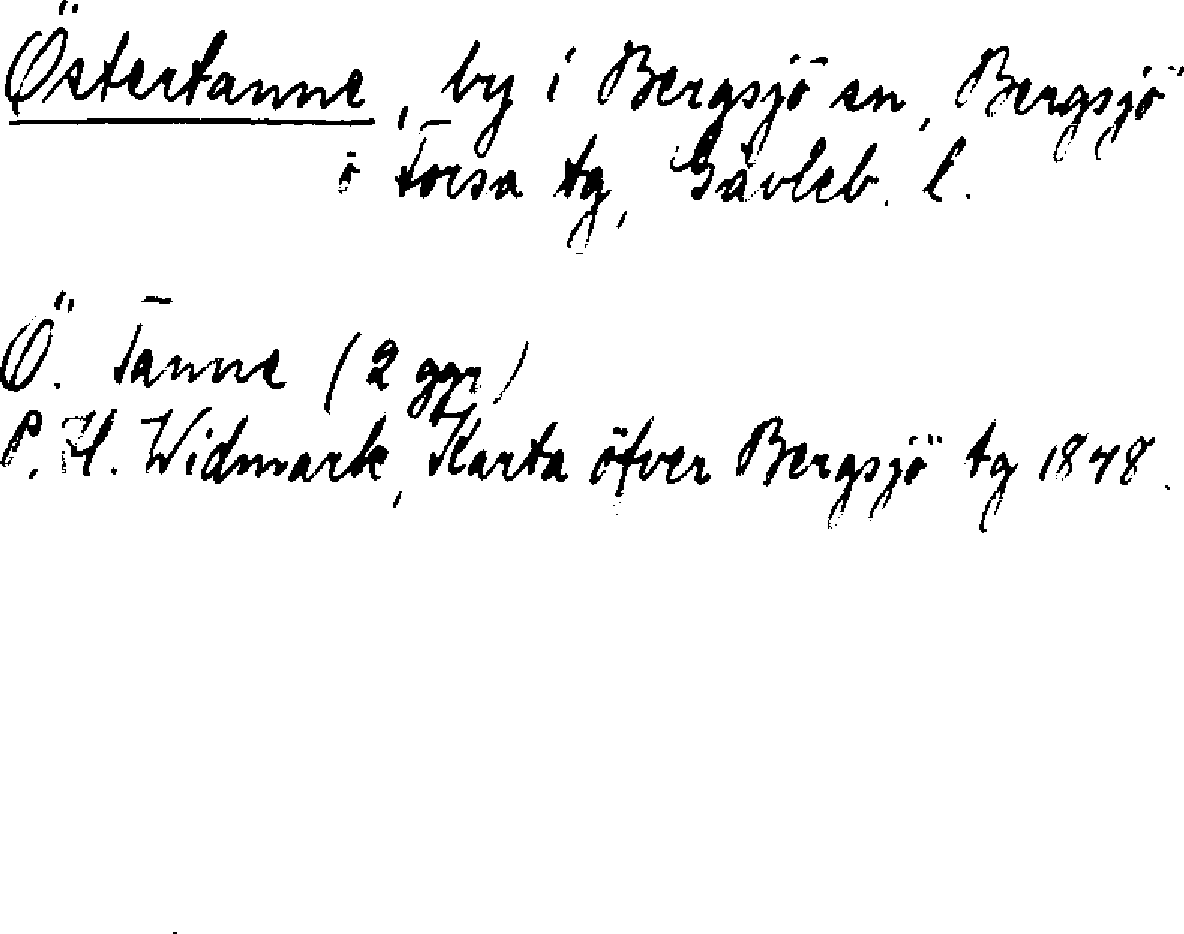 Östertanne, by i Bergsjö sn, Bergsjö
o Forsa tg, Gävleb. l.
Ö. Tanne (2 ggr)
P. H. Widmark, Karta öfver Bergsjö tg 1848.